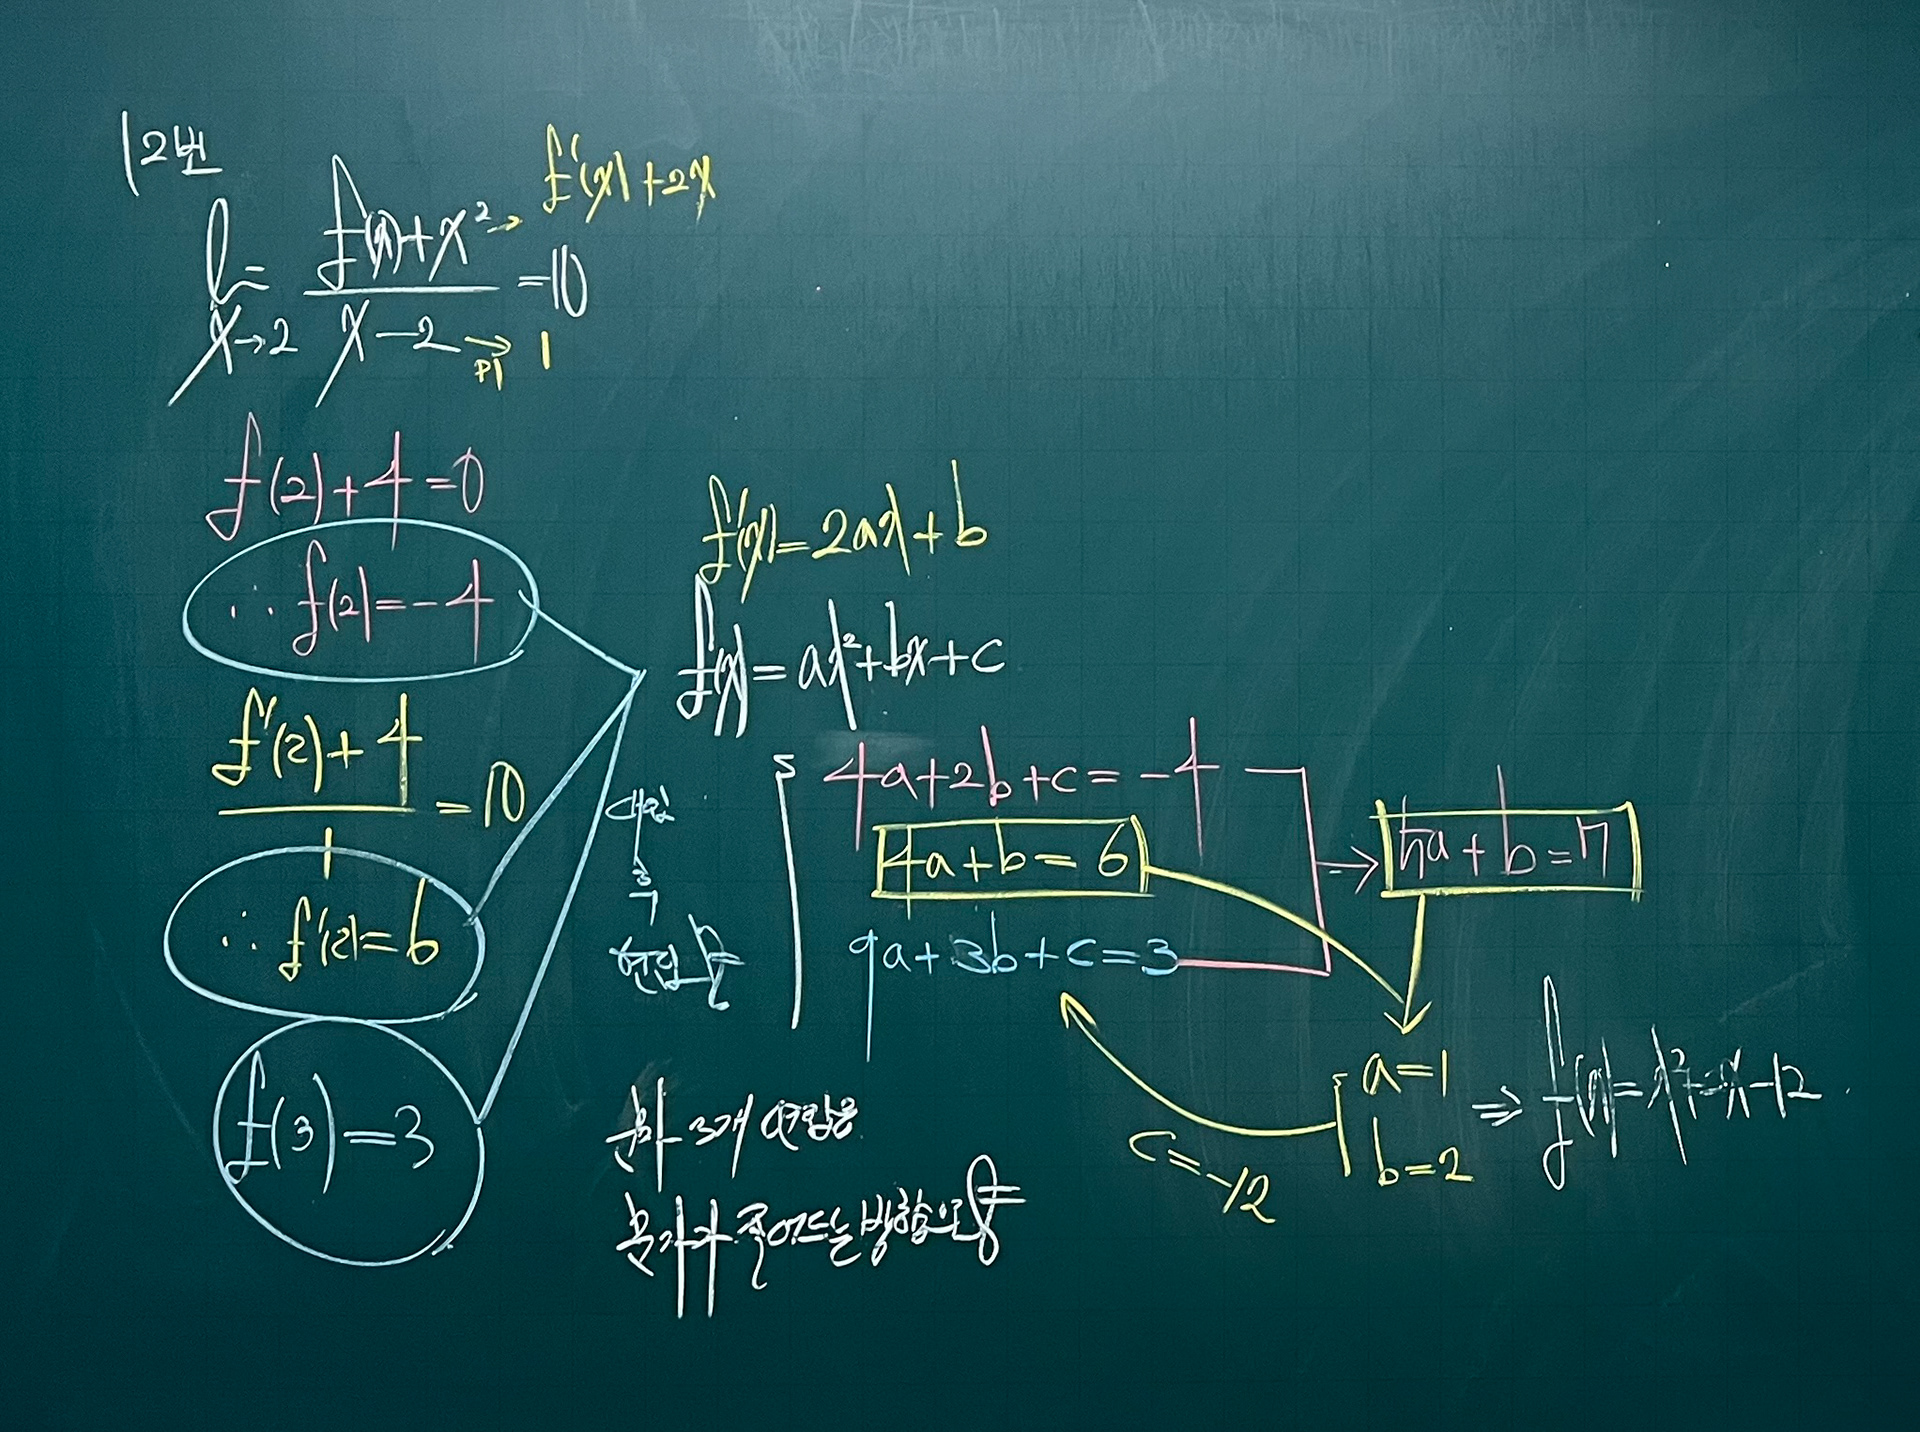 12번
lim x→2 f(x)+x² / x-2 = 10
→ f'(x)+2x
미 → 1
f(2)+4=0
∴ f(2)=-4
f'(2)+4 / 1 = 10
∴ f'(2)=6
f(3)=3
f'(x)=2ax+b
f(x)=ax²+bx+c
대입
4a+2b+c=-4
4a+b=6
9a+3b+c=3
→ 5a+b=7
a=1
b=2
c=-12
⇒ f(x)=x²+2x-12.
문자 3개 연립은
문자가 줄어드는 방향으로